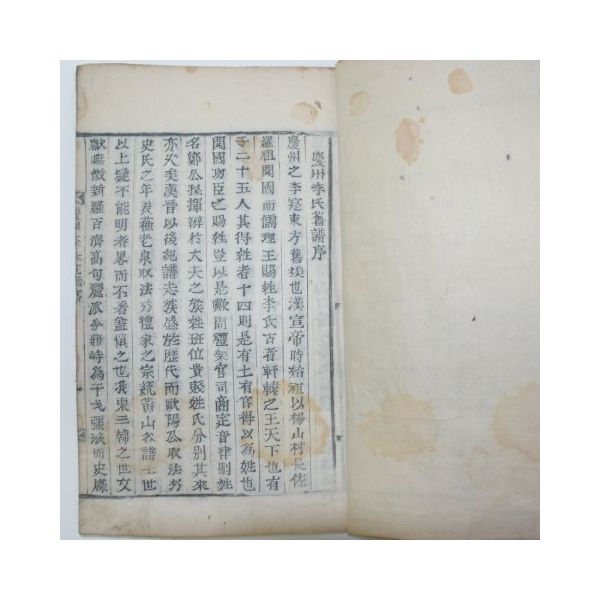 慶州李氏舊譜序
慶州之李寔東方舊族也漢宣帝時始祖以楊山村長佐
羅祖開國而儒理王賜姓李氏古者軒轅之王天下也有
子二十五人其得姓者十四則是有土有官得以爲姓也
開國功臣之賜姓豈以是歟周禮槩官司商定音律制姓
名鄭公孫揮辨於大夫之族姓班位貴賤姓氏分別其來
亦久矣漢晉以後紀譜志族盛於歷代而歐陽公取法於
史氏之年表蘇老泉取法於禮家之宗統黃山谷譜七世
以上雖不能明者畧而不著盖愼之也我東三韓之世文
獻無徵新羅百濟高句麗派分鼎峙爲干戈場而史牒